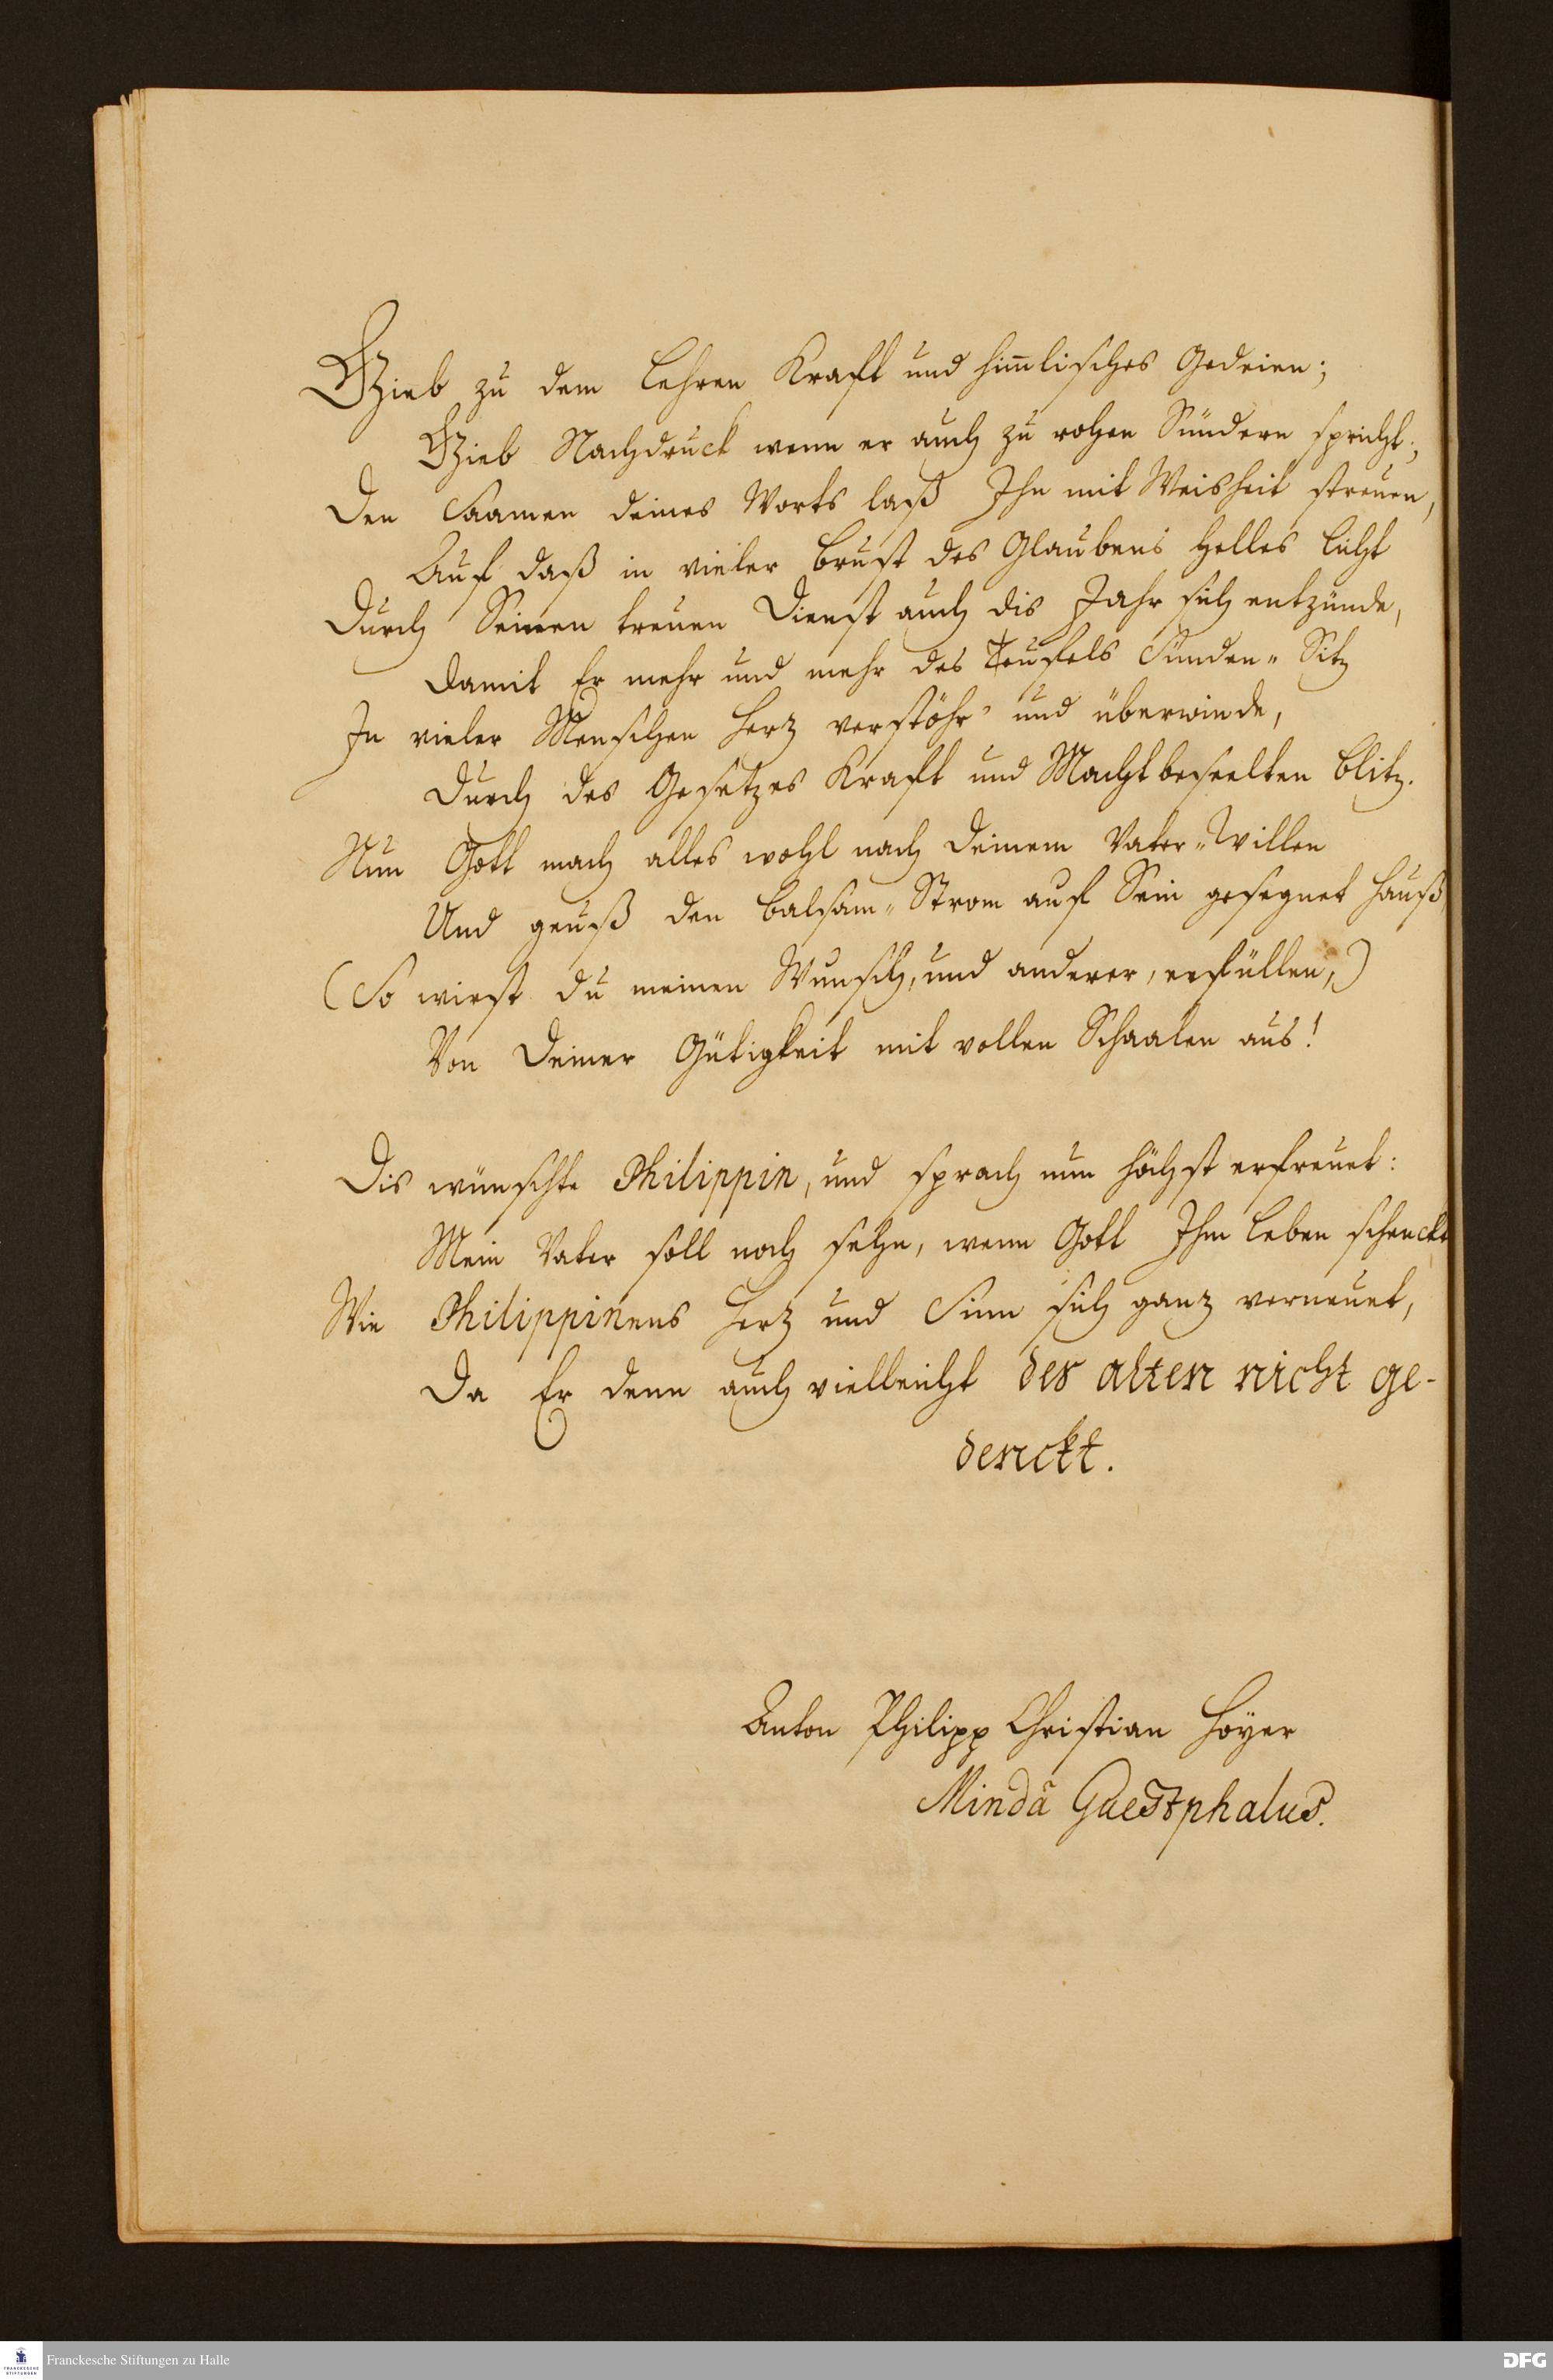 Gieb zu dem Lehren Krafft und him̄lisches Gedeien;
Gieb Nachdruck wenn er auch zu rohen Sündern spricht;
Den Saamen deines Worts laß Ihn mit Weisheit streuen,
Auf daß in vieler Brust des Glaubens helles Licht
Durch Seinen treuen Dienst auch dis Jahr sich entzünde,
Damit Er mehr und mehr des Teufels Sünden-Sitz
In vieler Menschen Hertz verstöhr' und überwinde,
Durch des Gesetzes Krafft und Macht beseelten Blitz.
Nun Gott mach alles wohl nach Deinem Vater-Willen
Und geuß den Balsam-Strom auf Sein gesegnet Hauß,
(So wirst du meinen Wunsch, und anderer, erfüllen,)
Von Deiner Gütigkeit mit vollen Schaalen aus!
Dis wünschte Philippin, und sprach nun höchst erfreuet:
Mein Vater soll noch sehn, wenn Gott Ihm Leben schenckt
Wie Philippinens Hertz und Sinn sich gantz verneuet,
Da Er denn auch vielleicht der alten nicht ge-
denckt.
Anton Philipp Christian Hoyer
Mindâ Guestphalus.
Franckesche Stiftungen zu Halle
FRANCKESCHE STIFTUNGEN
DFG